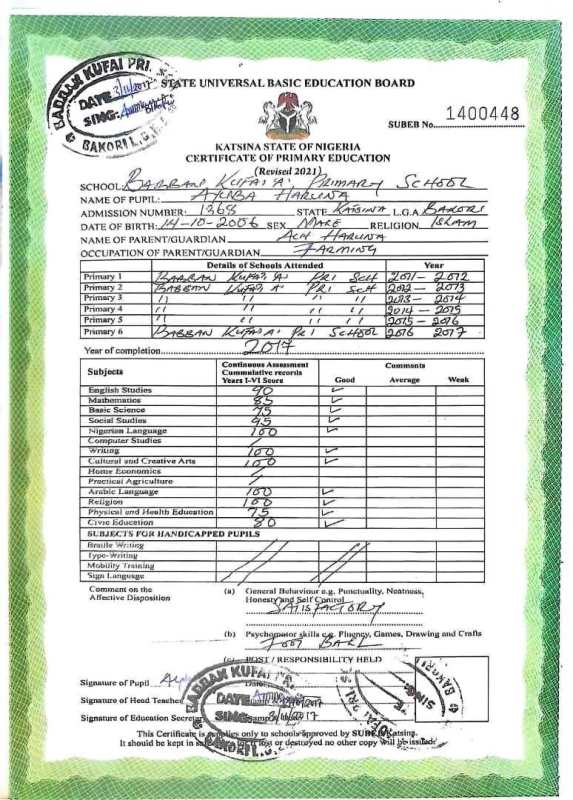 BABBAN KUFAI PRI.
DATE 3/11/2017
SING:
BAKORI L.G.E.A
STATE UNIVERSAL BASIC EDUCATION BOARD
SUBEB No. 1400448
KATSINA STATE OF NIGERIA
CERTIFICATE OF PRIMARY EDUCATION
(Revised 2021)
SCHOOL: BABBAN KUFAI 'A' PRIMARY SCHOOL
NAME OF PUPIL: AYUBA HARUNA
ADMISSION NUMBER: 1368 STATE KATSINA L.G.A BAKORI
DATE OF BIRTH: 14-10-2006 SEX MALE RELIGION ISLAM
NAME OF PARENT/GUARDIAN ALH HARUNA
OCCUPATION OF PARENT/GUARDIAN FARMING
Details of Schools Attended Year
Primary 1 BABBAN KUFAI 'A' PRI SCH 2011 - 2012
Primary 2 BABBAN KUFAI 'A' PRI SCH 2012 - 2013
Primary 3 " " " " 2013 - 2014
Primary 4 " " " " 2014 - 2015
Primary 5 " " " " 2015 - 2016
Primary 6 BABBAN KUFAI 'A' PRI SCHOOL 2016 2017
Year of completion 2017
Subjects Continuous Assessment Cummulative records Years I-VI Score Comments
Good Average Weak
English Studies 90 ✓
Mathematics 85 ✓
Basic Science 75 ✓
Social Studies 95 ✓
Nigerian Language 100 ✓
Computer Studies
Writing 100 ✓
Cultural and Creative Arts 100 ✓
Home Economics
Practical Agriculture
Arabic Language 100 ✓
Religion 100 ✓
Physical and Health Education 75 ✓
Civic Education 80 ✓
SUBJECTS FOR HANDICAPPED PUPILS
Braille Writing
Type-Writing
Mobility Training
Sign Language
Comment on the Affective Disposition
(a) General Behaviour e.g. Punctuality, Neatness,
Honesty and Self Control
SATISFACTORY
(b) Psychomotor skills e.g. Fluency, Games, Drawing and Crafts
FOOT BALL
(c) POST / RESPONSIBILITY HELD
Signature of Pupil
Signature of Head Teacher
Signature of Education Secretary
BABBAN KUFAI
DATE
SING:
BAKORI L.G.
This Certificate is only to schools approved by SUBEB Katsina.
It should be kept in lost or destroyed no other copy will be issued.